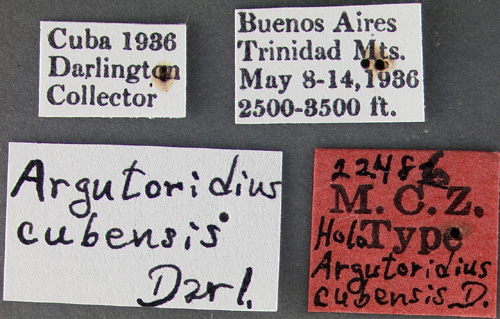 Cuba 1936
Darlington
Collector
Buenos Aires
Trinidad Mts.
May 8-14, 1936
2500-3500 ft.
Argutoridius
cubensis
Darl.
M. C. Z.
HoloType
Argutoridius
cubensis D.